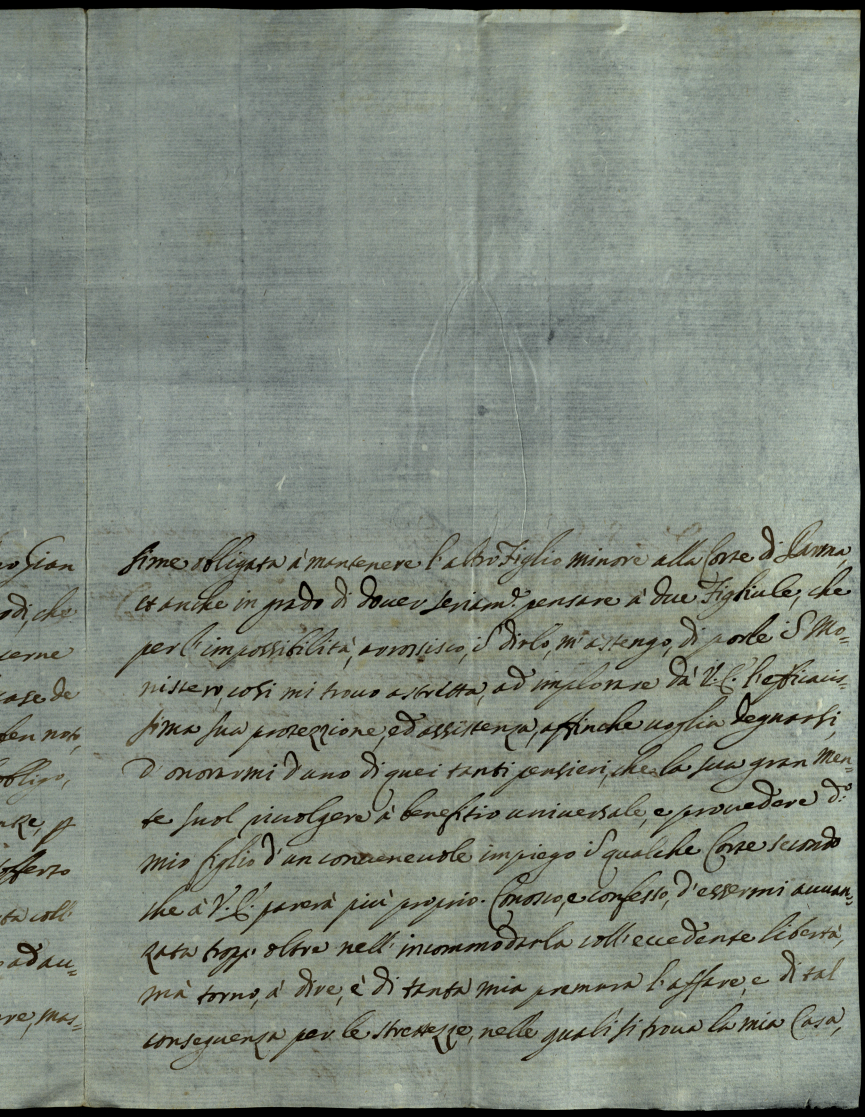 no Gian
odi, che
cerne
case de
ben not,
obligo,
nze, p
offerto
ta coll'
ad au=
are, mas=
sime obligata à mantenere l'altro Figlio minore alla Corte di Parma,
et anche in grado di dover seriam.te pensare à due Figliuole, che
per l'impossibilità, arrossisco, i dirlo, m'astengo, di porle i Mo=
nistero, così mi trovo astretta, ad implorare dà V. E. l'efficacis=
sima sua protezzione, ed assistenza, affinche uoglia degnarsi,
d'onorarmi d'uno di quei tanti pensieri, che la sua gran men=
te suol rivolgere à benefitio universale, e provedere d.o
mio figlio d'un conueneuole impiego i qualche Corte secondo
che à V. E. parerà più proprio. Conosco, e confesso, d'essermi auuan=
zata tropp' oltre nell'incommodarla coll'eccedente libertà,
mà torno, à dire, è di tanta mia premura l'affare, e di tal
conseguenza per le strettezze, nelle quali si troua la mia Casa,